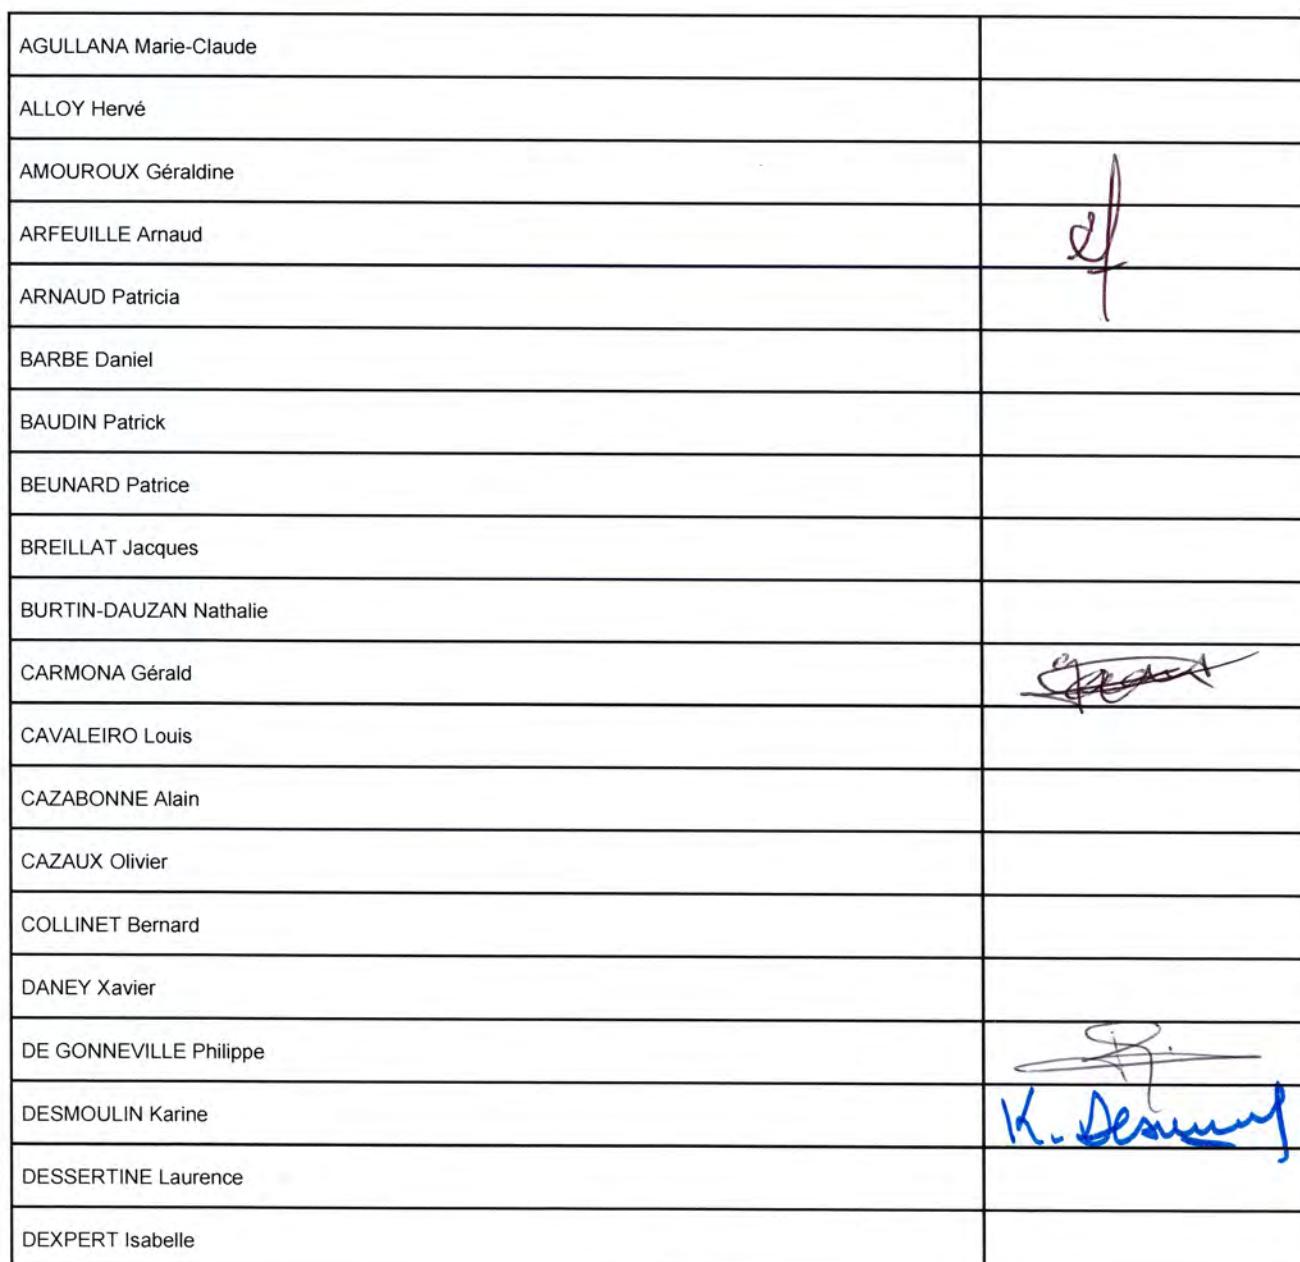 AGULLANA Marie-Claude
ALLOY Hervé
AMOUROUX Géraldine
ARFEUILLE Arnaud
ARNAUD Patricia
BARBE Daniel
BAUDIN Patrick
BEUNARD Patrice
BREILLAT Jacques
BURTIN-DAUZAN Nathalie
CARMONA Gérald
CAVALEIRO Louis
CAZABONNE Alain
CAZAUX Olivier
COLLINET Bernard
DANEY Xavier
DE GONNEVILLE Philippe
DESMOULIN Karine
K.
DESSERTINE Laurence
DEXPERT Isabelle